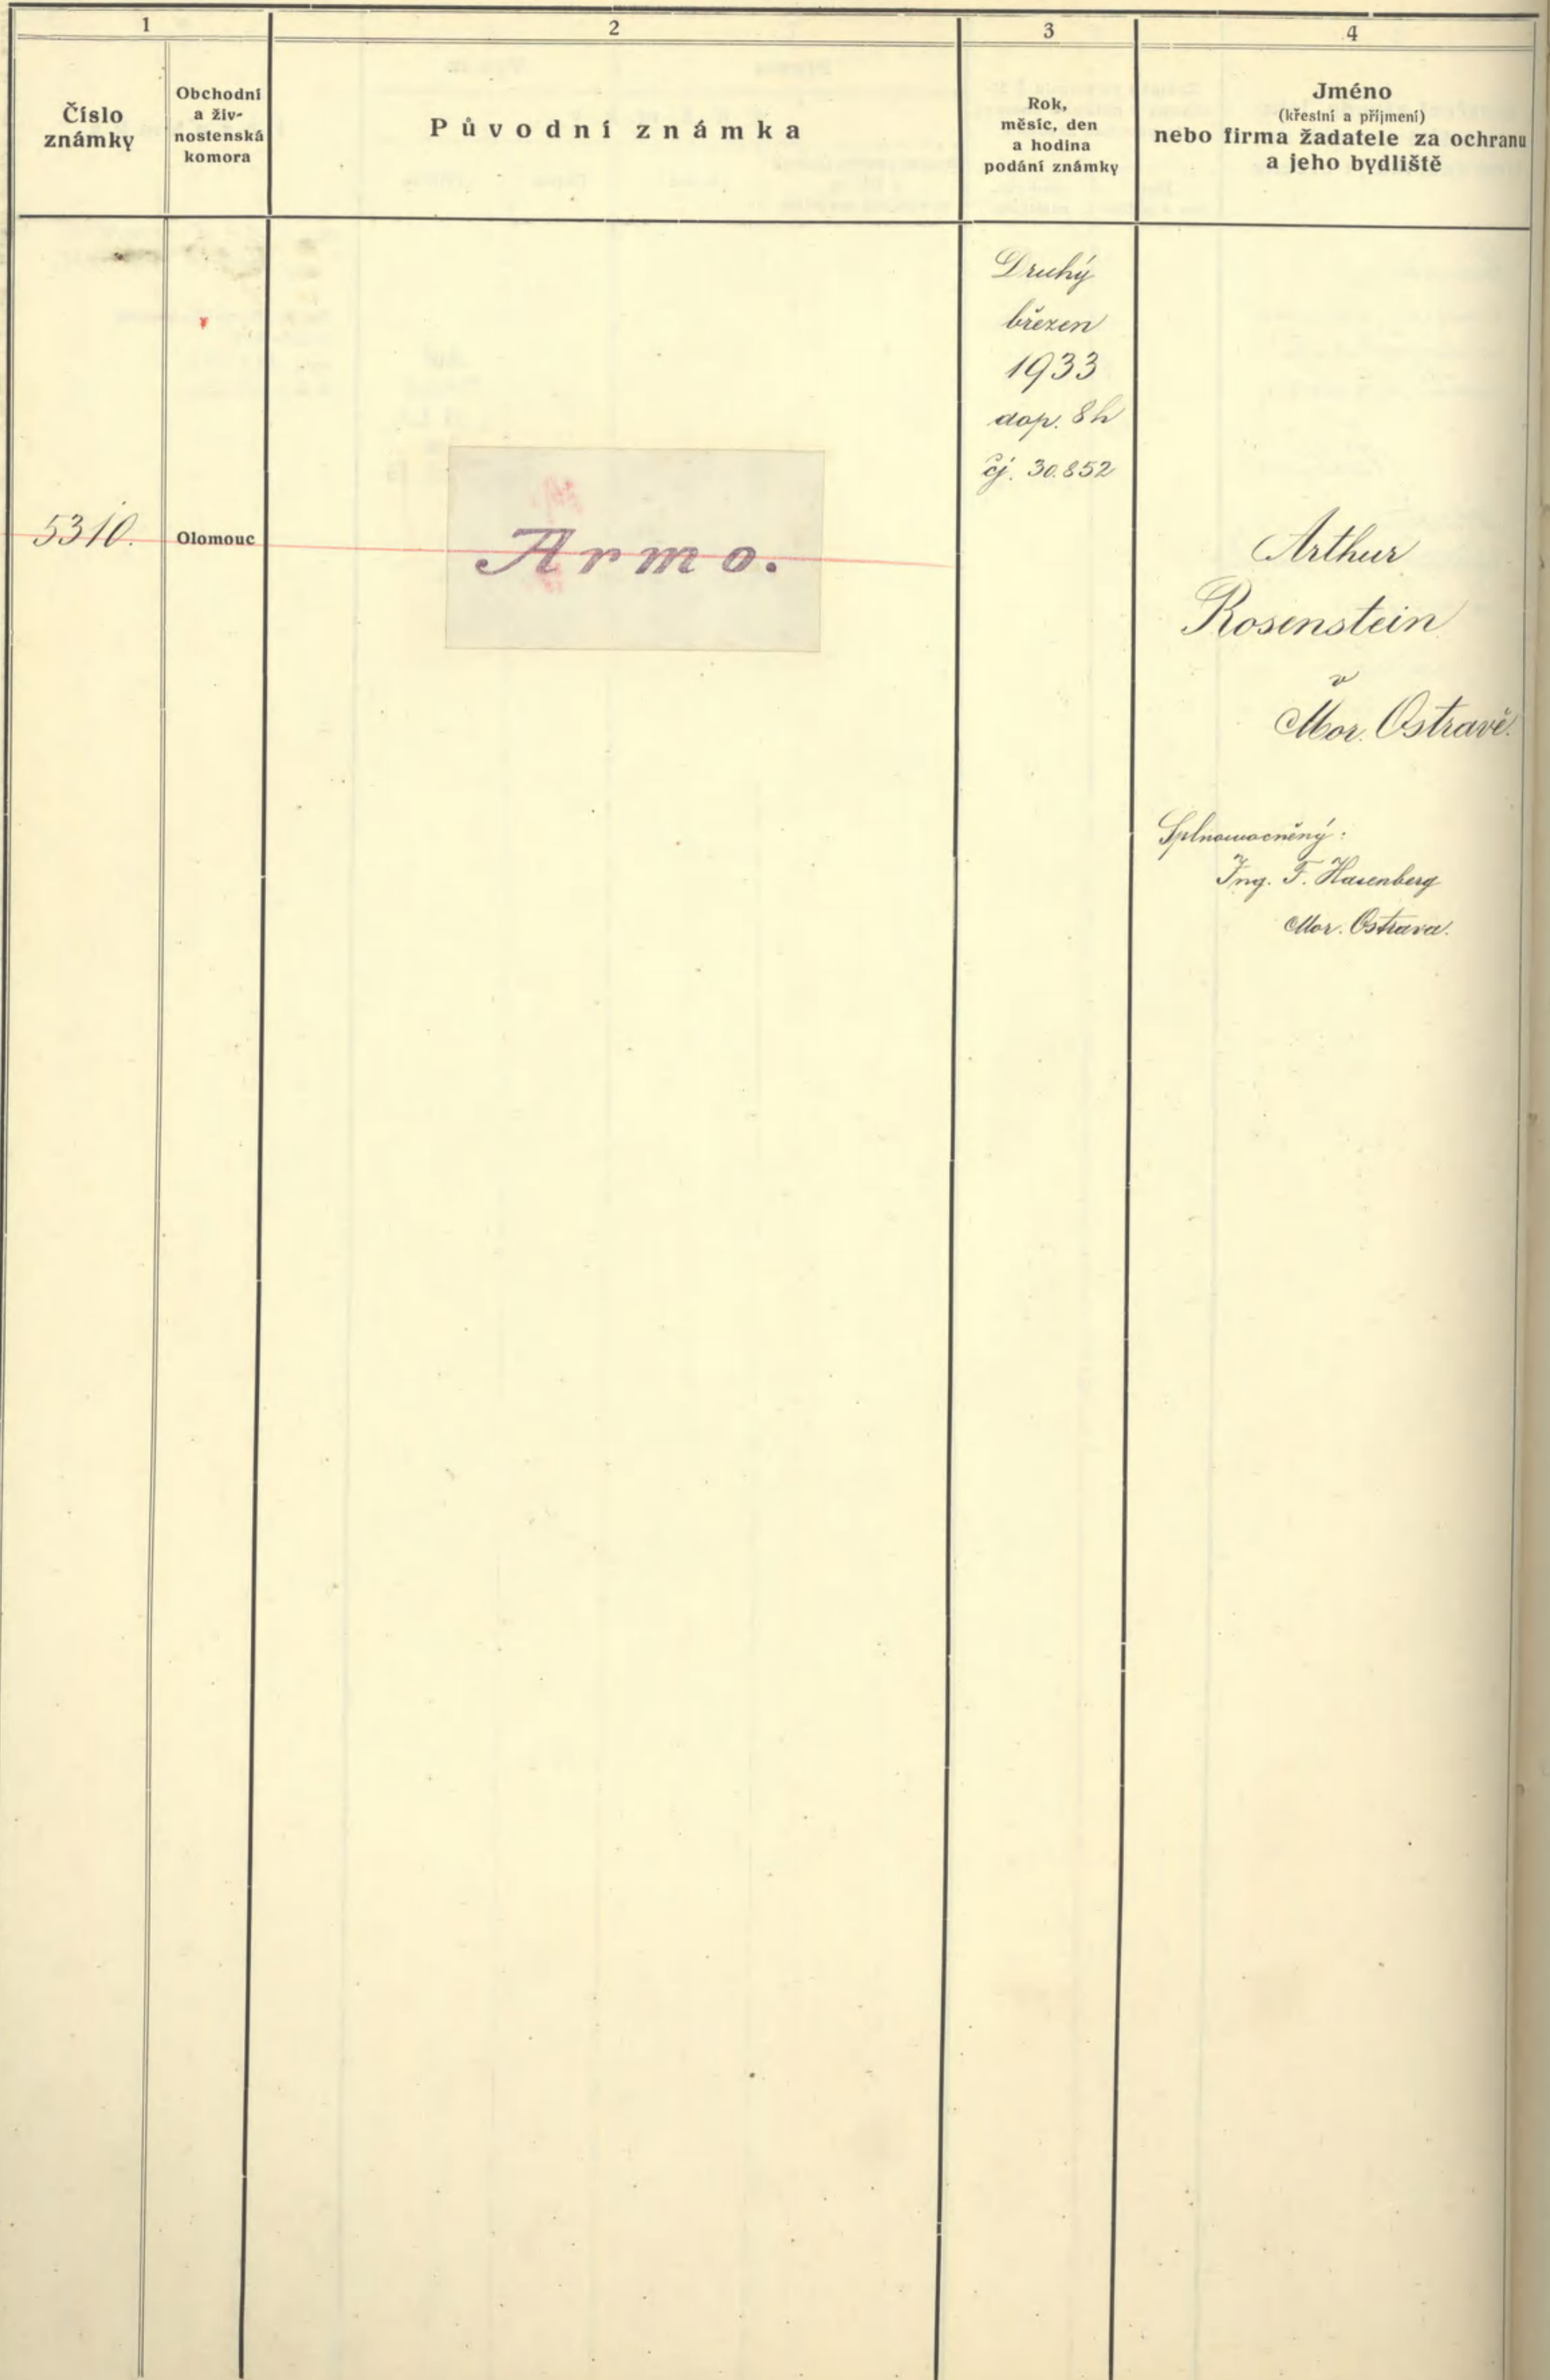 1
2
3
4
Číslo
známky
Obchodní
a živ-
nostenská
komora
Původní známka
Rok,
měsíc, den
a hodina
podání známky
Jméno
(křestní a příjmení)
nebo firma žadatele za ochranu
a jeho bydliště
Druhý
březen
1933
dop. 8h
čj. 30.852
5310.
Olomouc
Armo.
Arthur
Rosenstein
v
Mor. Ostravě.
Splnomocněný:
Ing. F. Hasenberg
Mor. Ostrava.